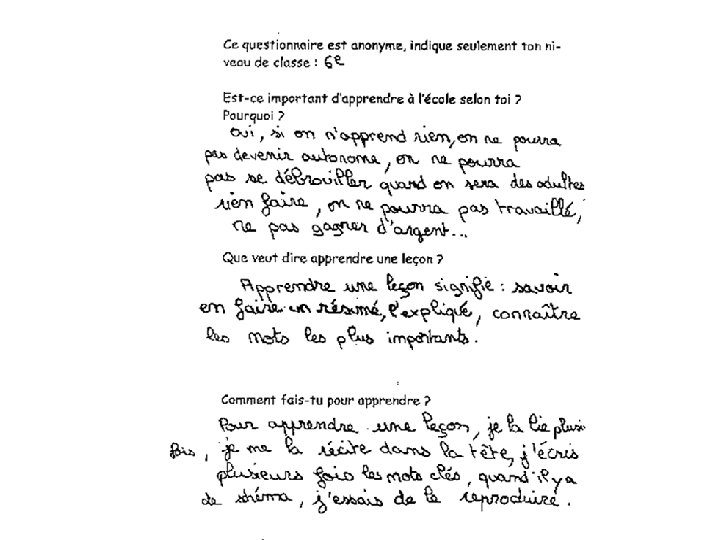 Ce questionnaire est anonyme, indique seulement ton ni-
veau de classe : 6e
Est-ce important d'apprendre à l'école selon toi ?
Pourquoi ?
Oui, si on n'apprend rien, on ne pourra
pas devenir autonome, on ne pourra
pas se débrouiller quand on sera des adultes
rien faire, on ne pourra pas travaillé,
ne pas gagner d'argent...
Que veut dire apprendre une leçon ?
Apprendre une leçon signifie : savoir
en faire un résumé, l'expliqué, connaître
les mots les plus importants.
Comment fais-tu pour apprendre ?
Pour apprendre une leçon, je la lie plusi
fois, je me la récite dans la tête, j'écris
plusieurs fois les mots clés, quand il y a
de shéma, j'essais de le reproduire.